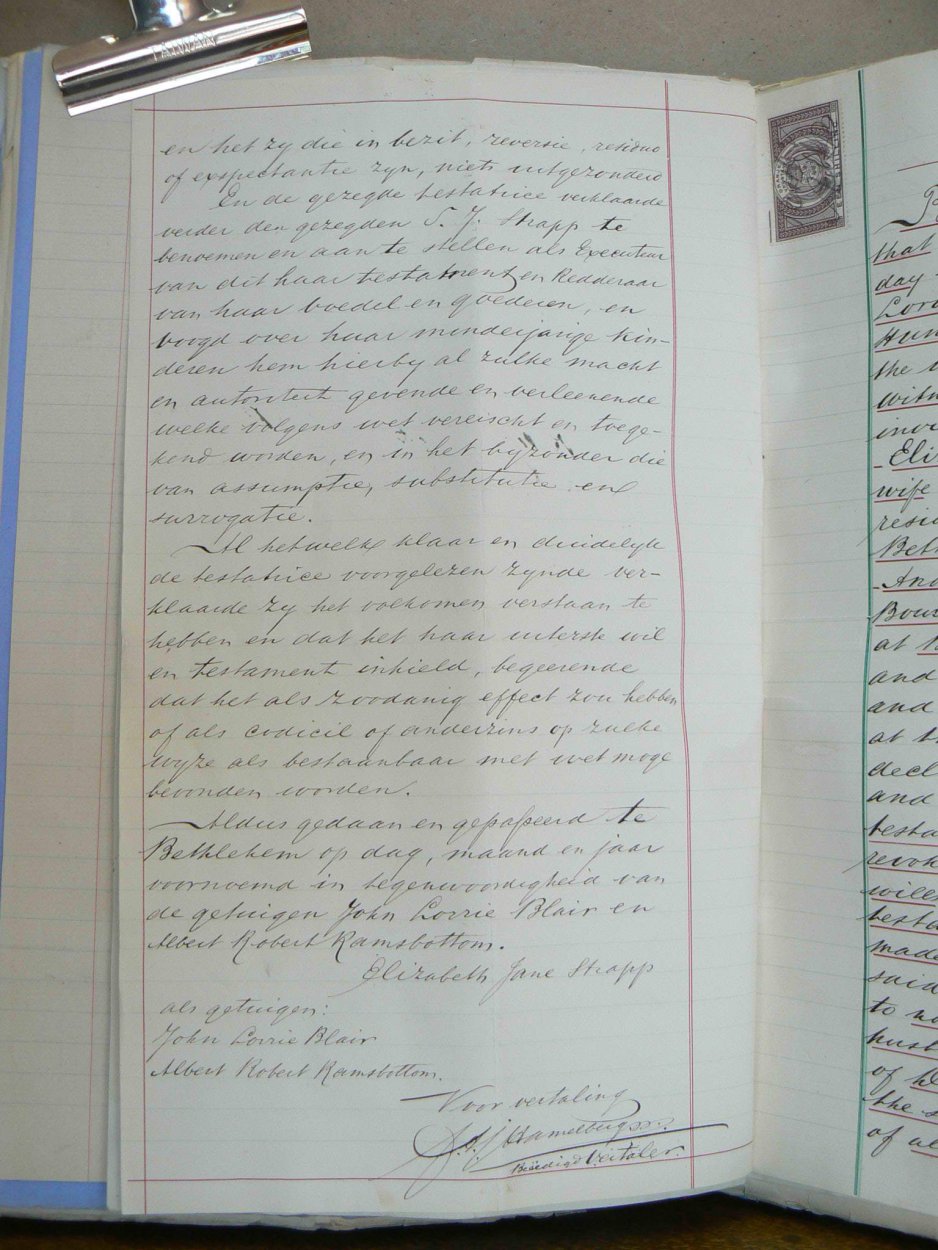 TAIWAN
en het zij die in bezit, reversie, residuo
of exspectantie zyn, niets uitgezonderd
En de gezegde testatrice verklaarde
verder den gezegden S. J. Strapp te
benoemen en aan te stellen als Executeur
van dit haar testament en Redderaar
van haar boedel en goederen, en
voogd over haar minderjarige kin-
deren hem hierby al zulke macht
en autoriteit gevende en verleenende
welke volgens wet vereischt en toege-
kend worden, en in het byzonder die
van assumptie, substitutie en
surrogatie.
Al hetwelk klaar en duidelyk
de testatrice voorgelezen zynde ver-
klaarde zy het volkomen verstaan te
hebben en dat het haar uiterste wil
en testament inhield, begeerende
dat het als zoodanig effect zou hebben
of als codicil of anderzins op zulke
wyze als bestaanbaar met wet moge
bevonden worden.
Aldus gedaan en gepasseerd te
Bethlehem op dag, maand en jaar
voornoemd in tegenwoordigheid van
de getuigen John Lorrie Blair en
Albert Robert Ramsbottom.
Elizabeth Jane Strapp
als getuigen:
John Lorrie Blair
Albert Robert Ramsbottom.
Voor vertaling
Hamelberg
Beëedigd Vertaler.
that
day
Lord
Hun
the
witn
Eli
wife
resi
Beth
And
Bour
at
and
and
at
decl
and
testa
revok
wills
testa
made
said
to
husb
of
the
of